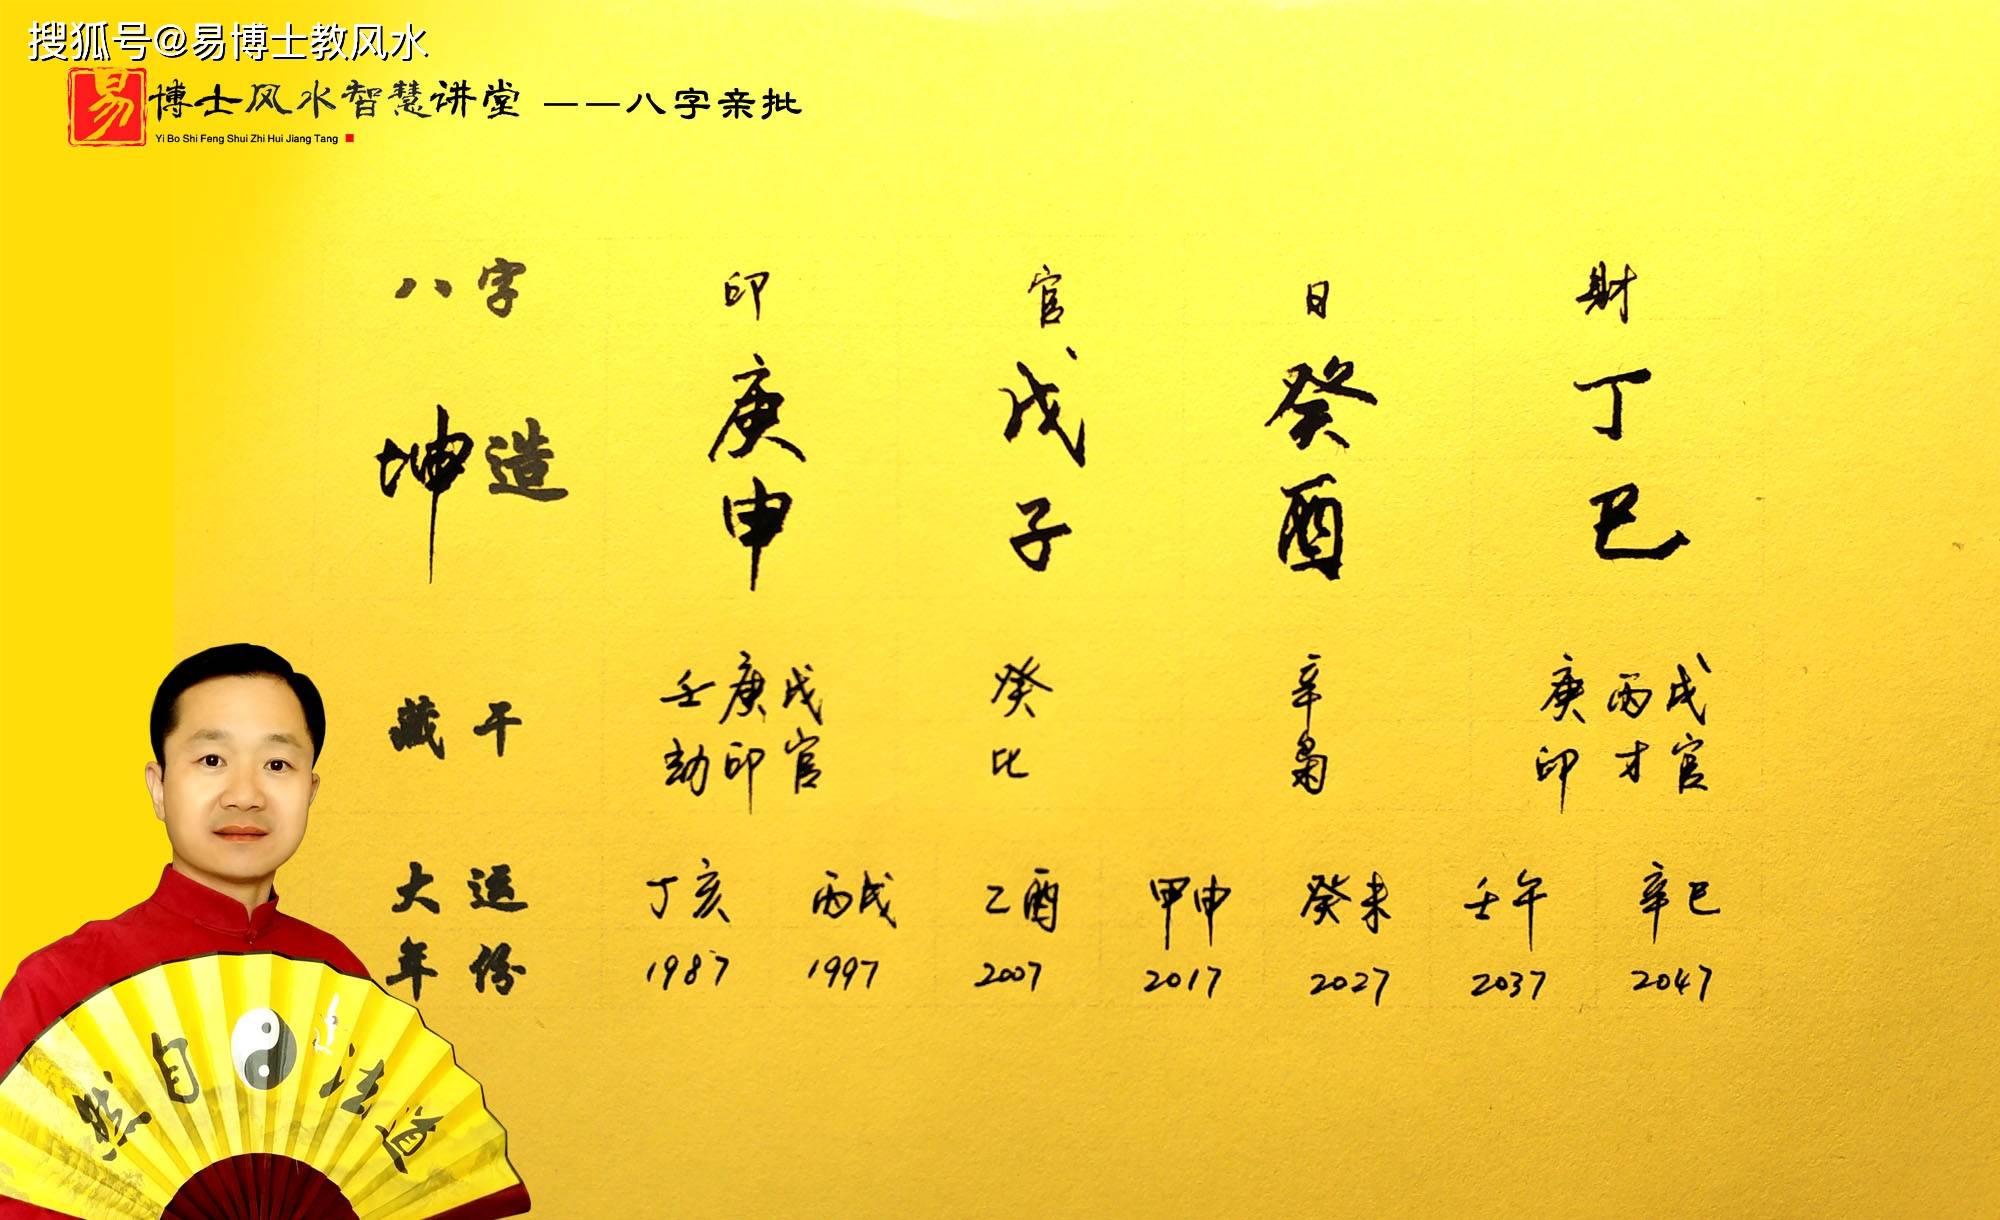 搜狐号@易博士教风水
易博士风水智慧讲堂 ——八字亲批
Yi Bo Shi Feng Shui Zhi Hui Jiang Tang
八字 印 官 日 财
坤造 庚 戊 癸 丁
申 子 酉 巳
藏干 壬庚戊 癸 辛 庚丙戊
劫印官 比 枭 印才官
大运 丁亥 丙戌 乙酉 甲申 癸未 壬午 辛巳
年份 1987 1997 2007 2017 2027 2037 2047
然自法道